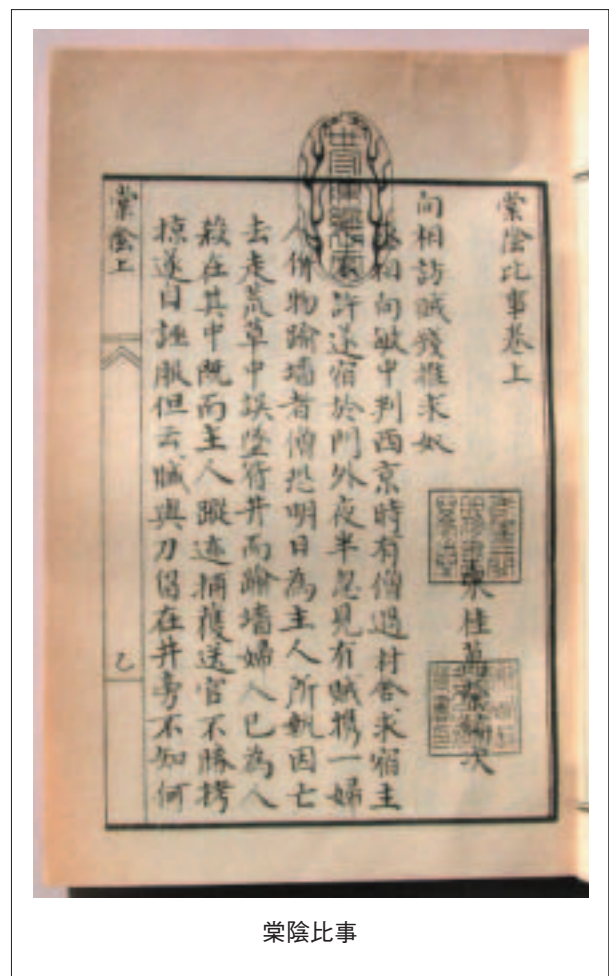 棠陰比事卷上
桂萬榮編次
向相訪賊錢推求奴
相向敏中判西京時有僧過村舍求宿主
許遂宿於門外夜半忽見有賊携一婦
人偕物踰墻者僧恐明日為主人所執因亡
去走荒草中誤墜眢井而踰墻婦人已為人
殺在其中既而主人蹤迹捕獲送官不勝拷
掠遂自誣服但云贓與刀留在井旁不知何
棠陰上
乙
棠陰比事